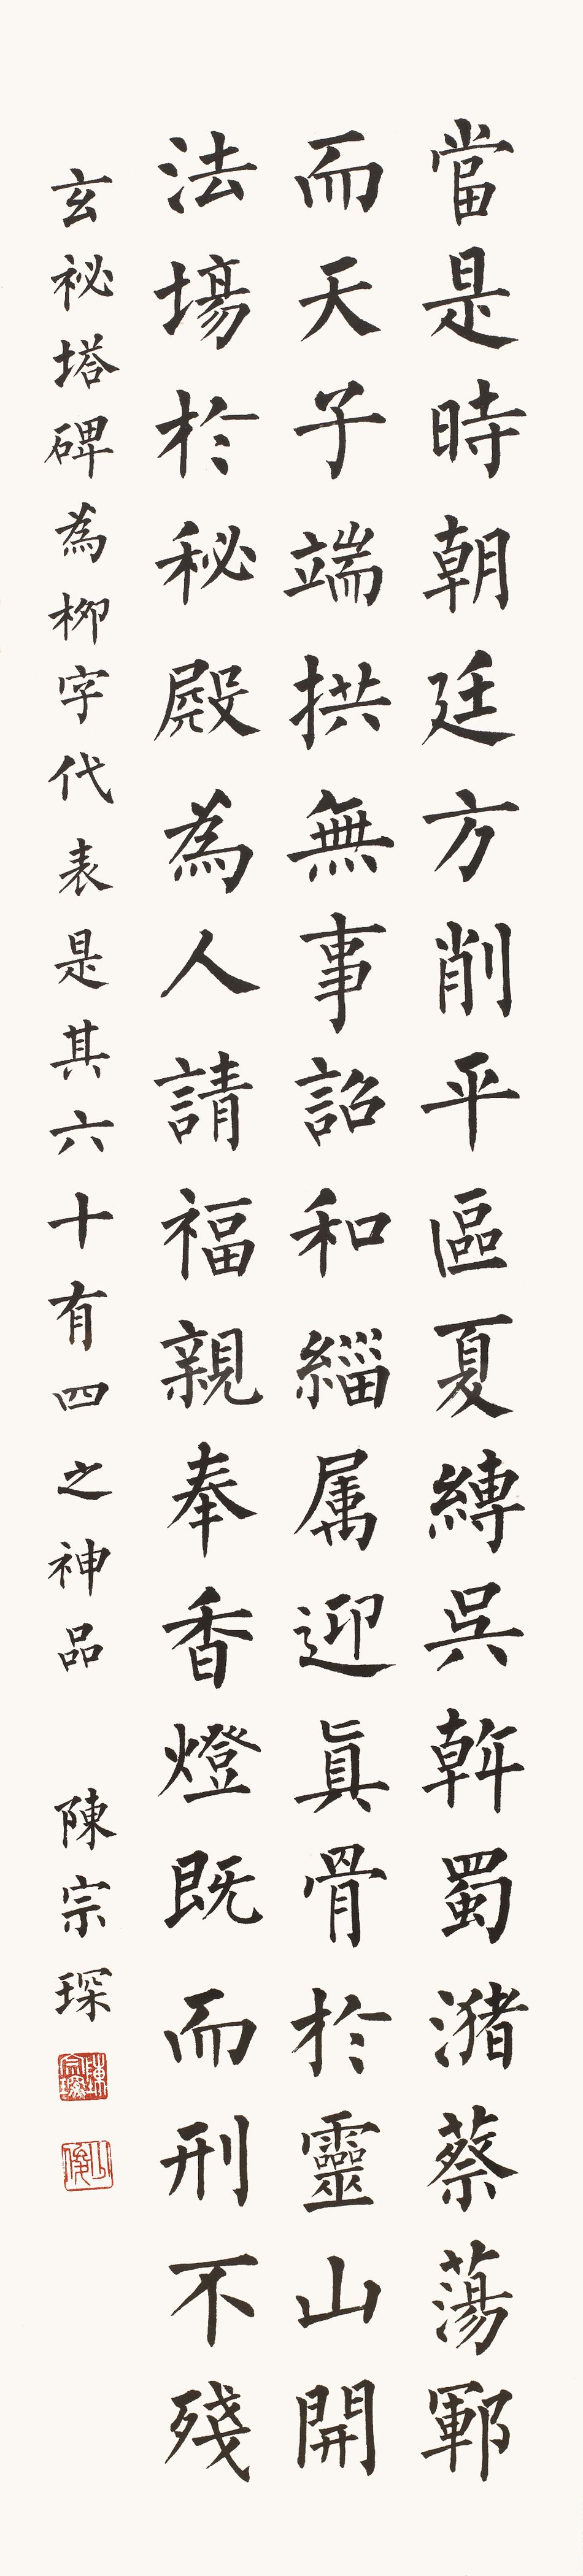 當是時朝廷方削平區夏縛吳斡蜀瀦蔡蕩鄆
而天子端拱無事詔和緇属迎真骨於靈山開
法場於秘殿為人請福親奉香燈既而刑不殘
玄祕塔碑為柳字代表是其六十有四之神品 陳宗琛
陳宗琛